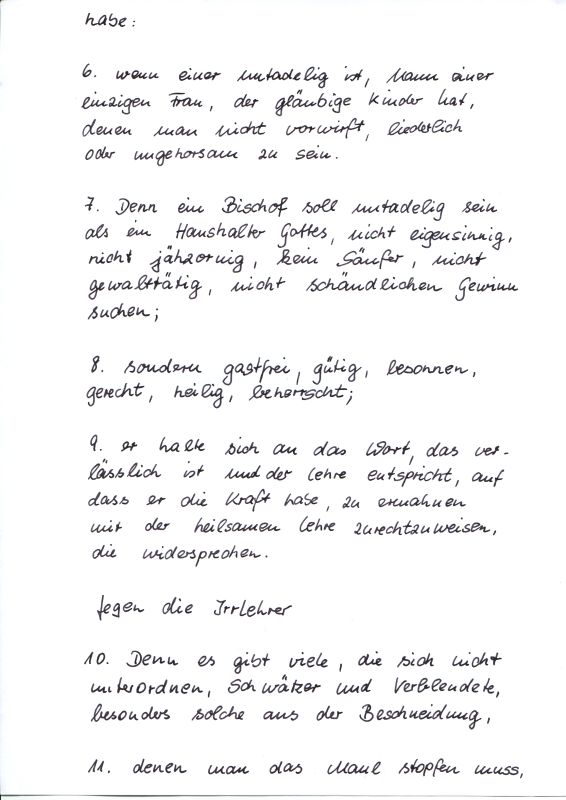 habe:
6. wenn einer untadelig ist, Mann einer
einzigen Frau, der gläubige Kinder hat,
denen man nicht vorwirft, liederlich
oder ungehorsam zu sein.
7. Denn ein Bischof soll untadelig sein
als ein Haushalter Gottes, nicht eigensinnig,
nicht jähzornig, kein Säufer, nicht
gewalttätig, nicht schändlichen Gewinn
suchen;
8. sondern gastfrei, gütig, besonnen,
gerecht, heilig, beherrscht;
9. er halte sich an das Wort, das ver-
lässlich ist und der Lehre entspricht, auf
dass er die Kraft habe, zu ermahnen
mit der heilsamen Lehre zurechtzuweisen,
die widersprechen.
Gegen die Irrlehrer
10. Denn es gibt viele, die sich nicht
unterordnen, Schwätzer und Verblendete,
besonders solche aus der Beschneidung,
11. denen man das Maul stopfen muss,